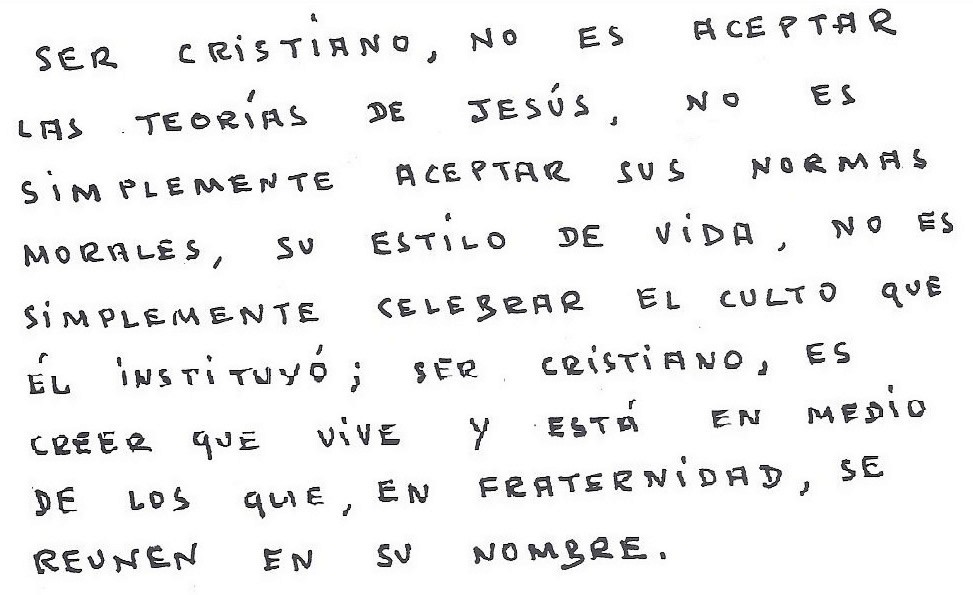 SER CRiSTiANO, NO ES ACEPTAR
LAS TEORÍAS DE JESÚS, NO ES
SiMPLEMENTE ACEPTAR SUS NORMAS
MORALES, SU ESTiLO DE ViDA, NO ES
SiMPLEMENTE CELEBRAR EL CULTO QUE
ÉL iNSTiTUYÓ; SER CRiSTiANO, ES
CREER QUE ViVE Y ESTÁ EN MEDiO
DE LOS QUE, EN FRATERNiDAD, SE
REUNEN EN SU NOMBRE.